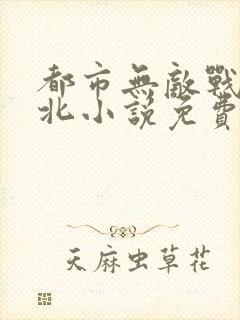 都市無敵戰
北小說免費
天麻虫草花